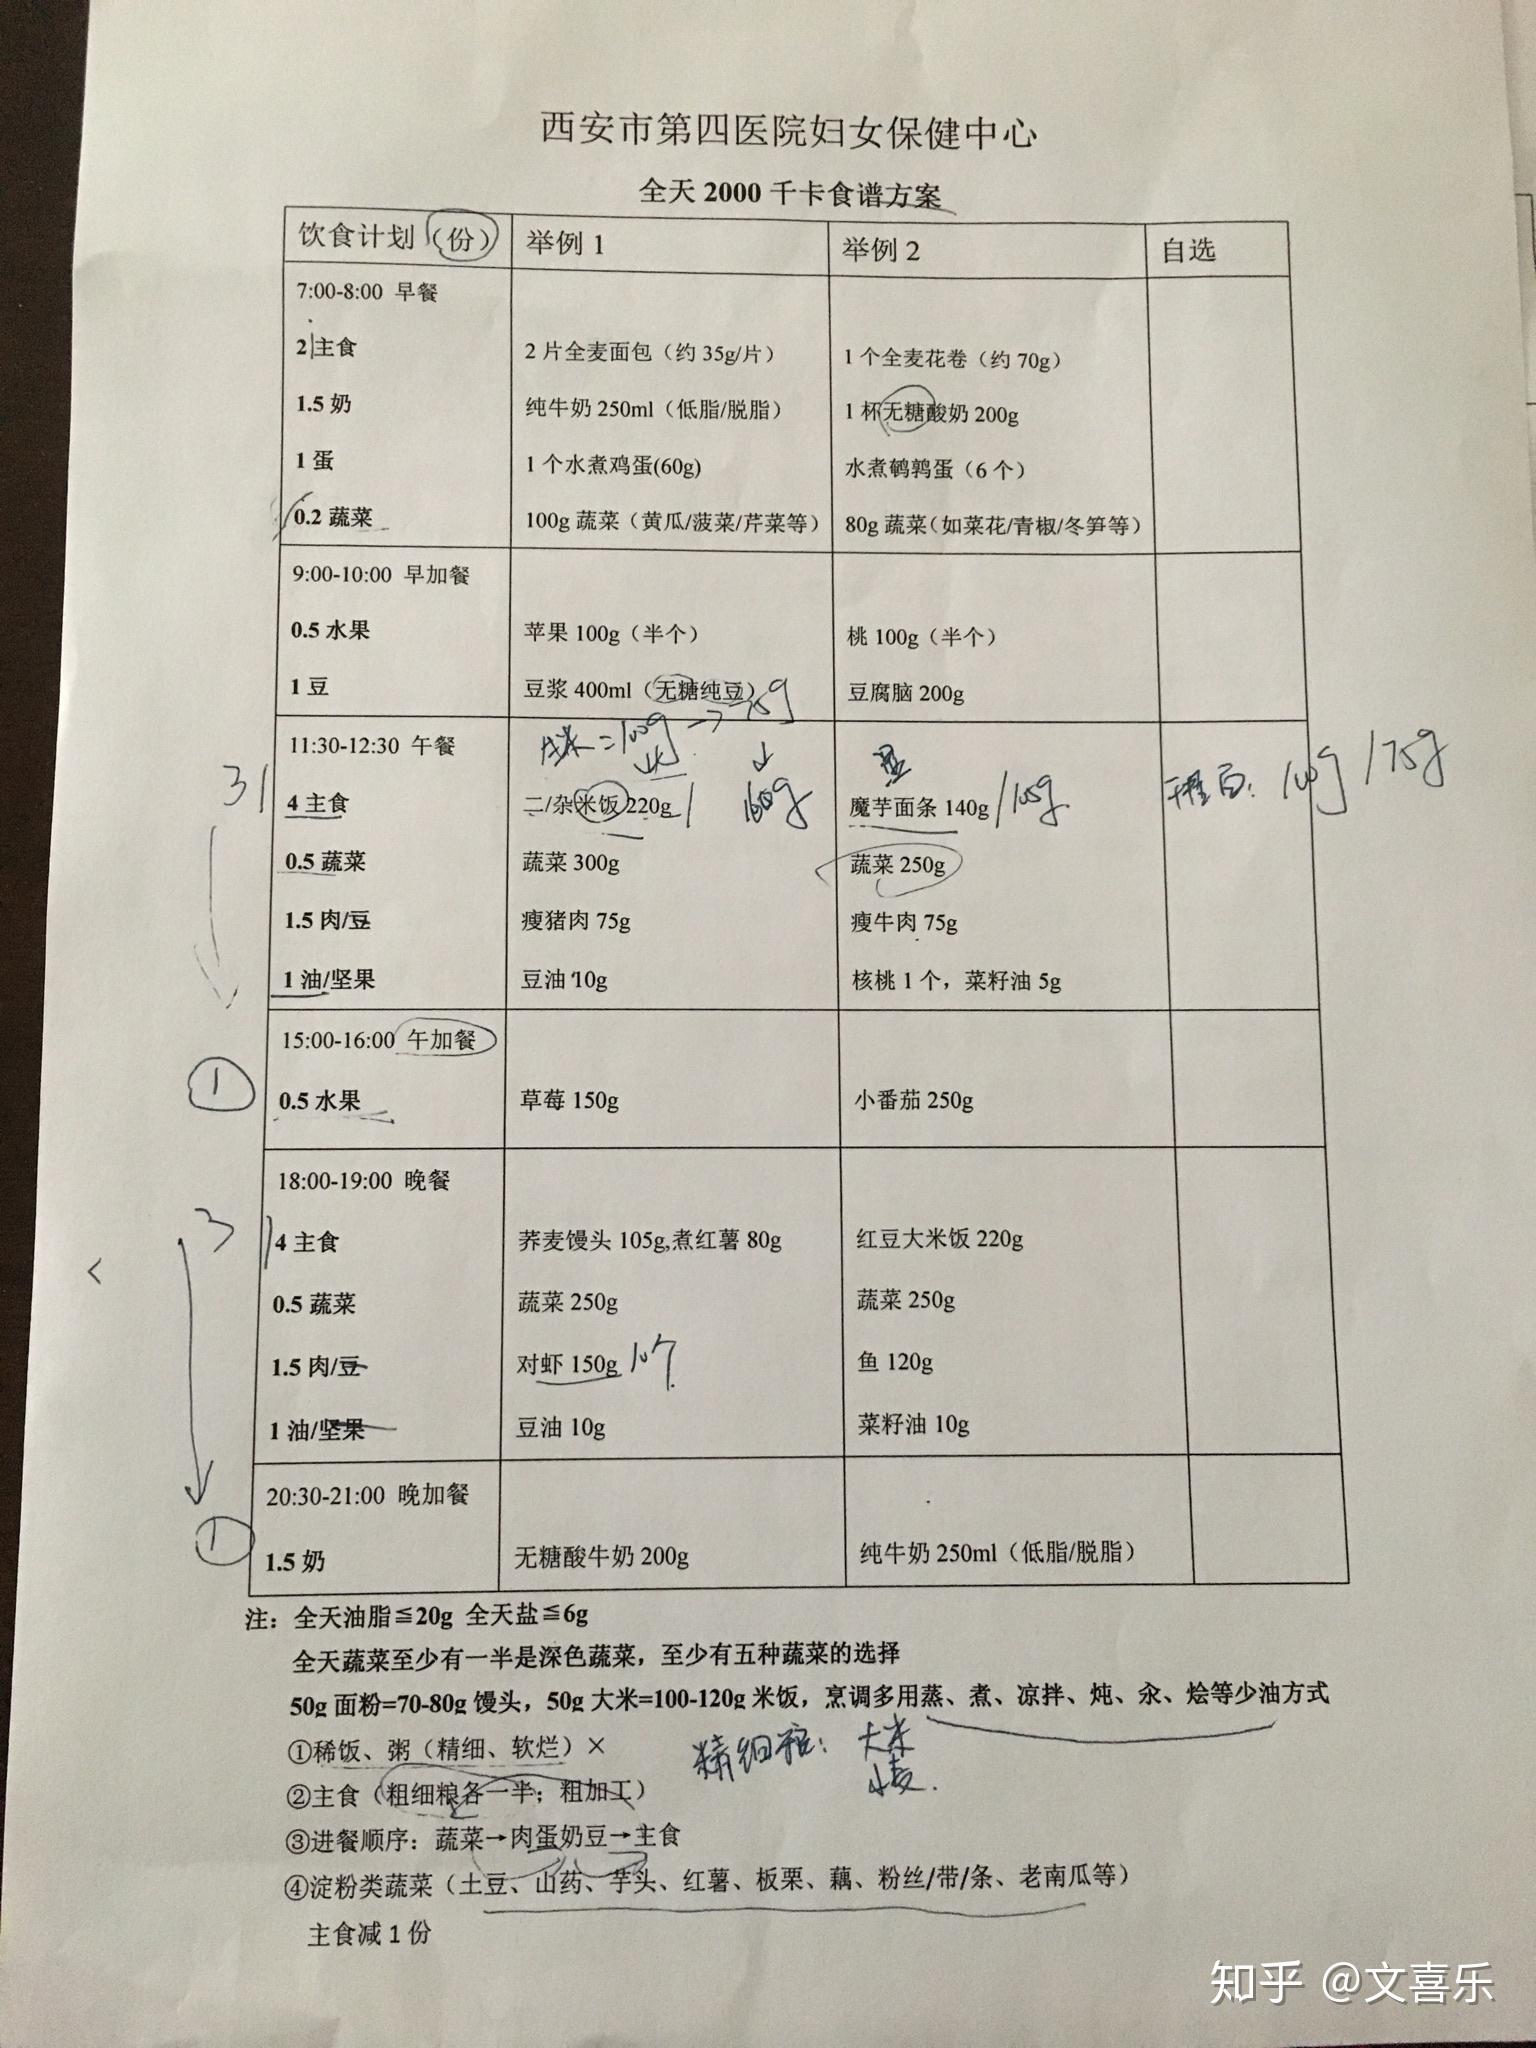 西安市第四医院妇女保健中心
全天 2000 千卡食谱方案
饮食计划（份） 举例 1 举例 2 自选
7:00-8:00 早餐
2 主食 2 片全麦面包（约 35g/片） 1 个全麦花卷（约 70g）
1.5 奶 纯牛奶 250ml（低脂/脱脂） 1 杯无糖酸奶 200g
1 蛋 1 个水煮鸡蛋(60g) 水煮鹌鹑蛋（6 个）
0.2 蔬菜 100g 蔬菜（黄瓜/菠菜/芹菜等） 80g 蔬菜（如菜花/青椒/冬笋等）
9:00-10:00 早加餐
0.5 水果 苹果 100g（半个） 桃 100g（半个）
1 豆 豆浆 400ml（无糖纯豆） 豆腐脑 200g
11:30-12:30 午餐 =100g → 75g
3 4 主食 二/杂米饭 220g 160g 魔芋面条 140g /105g 100g /75g
0.5 蔬菜 蔬菜 300g 蔬菜 250g
1.5 肉/豆 瘦猪肉 75g 瘦牛肉 75g
1 油/坚果 豆油 10g 核桃 1 个，菜籽油 5g
15:00-16:00 午加餐
① 0.5 水果 草莓 150g 小番茄 250g
18:00-19:00 晚餐
3 4 主食 荞麦馒头 105g,煮红薯 80g 红豆大米饭 220g
0.5 蔬菜 蔬菜 250g 蔬菜 250g
1.5 肉/豆 对虾 150g 10个 鱼 120g
1 油/坚果 豆油 10g 菜籽油 10g
20:30-21:00 晚加餐
① 1.5 奶 无糖酸牛奶 200g 纯牛奶 250ml（低脂/脱脂）
注：全天油脂≦20g 全天盐≦6g
全天蔬菜至少有一半是深色蔬菜，至少有五种蔬菜的选择
50g 面粉=70-80g 馒头，50g 大米=100-120g 米饭，烹调多用蒸、煮、凉拌、炖、汆、烩等少油方式
①稀饭、粥（精细、软烂）× 精细粮：大米
小麦.
②主食（粗细粮各一半；粗加工）
③进餐顺序：蔬菜→肉蛋奶豆→主食
④淀粉类蔬菜（土豆、山药、芋头、红薯、板栗、藕、粉丝/带/条、老南瓜等）
主食减 1 份
知乎 @文喜乐